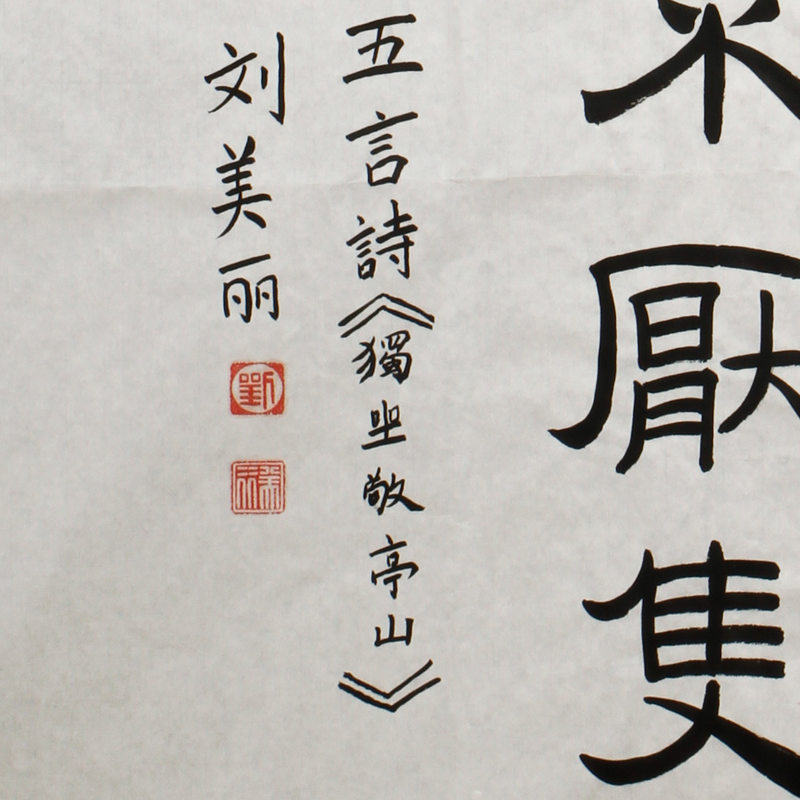 厭隻
五言詩《獨坐敬亭山》
刘美丽
劉